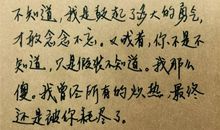 不知道,我是鼓起了多大的勇气,
才敢念念不忘。又或者,你不是不
知道,只是假装不知道。我那么
傻。我曾经所有的炽热,最终
还是被你耗尽了。